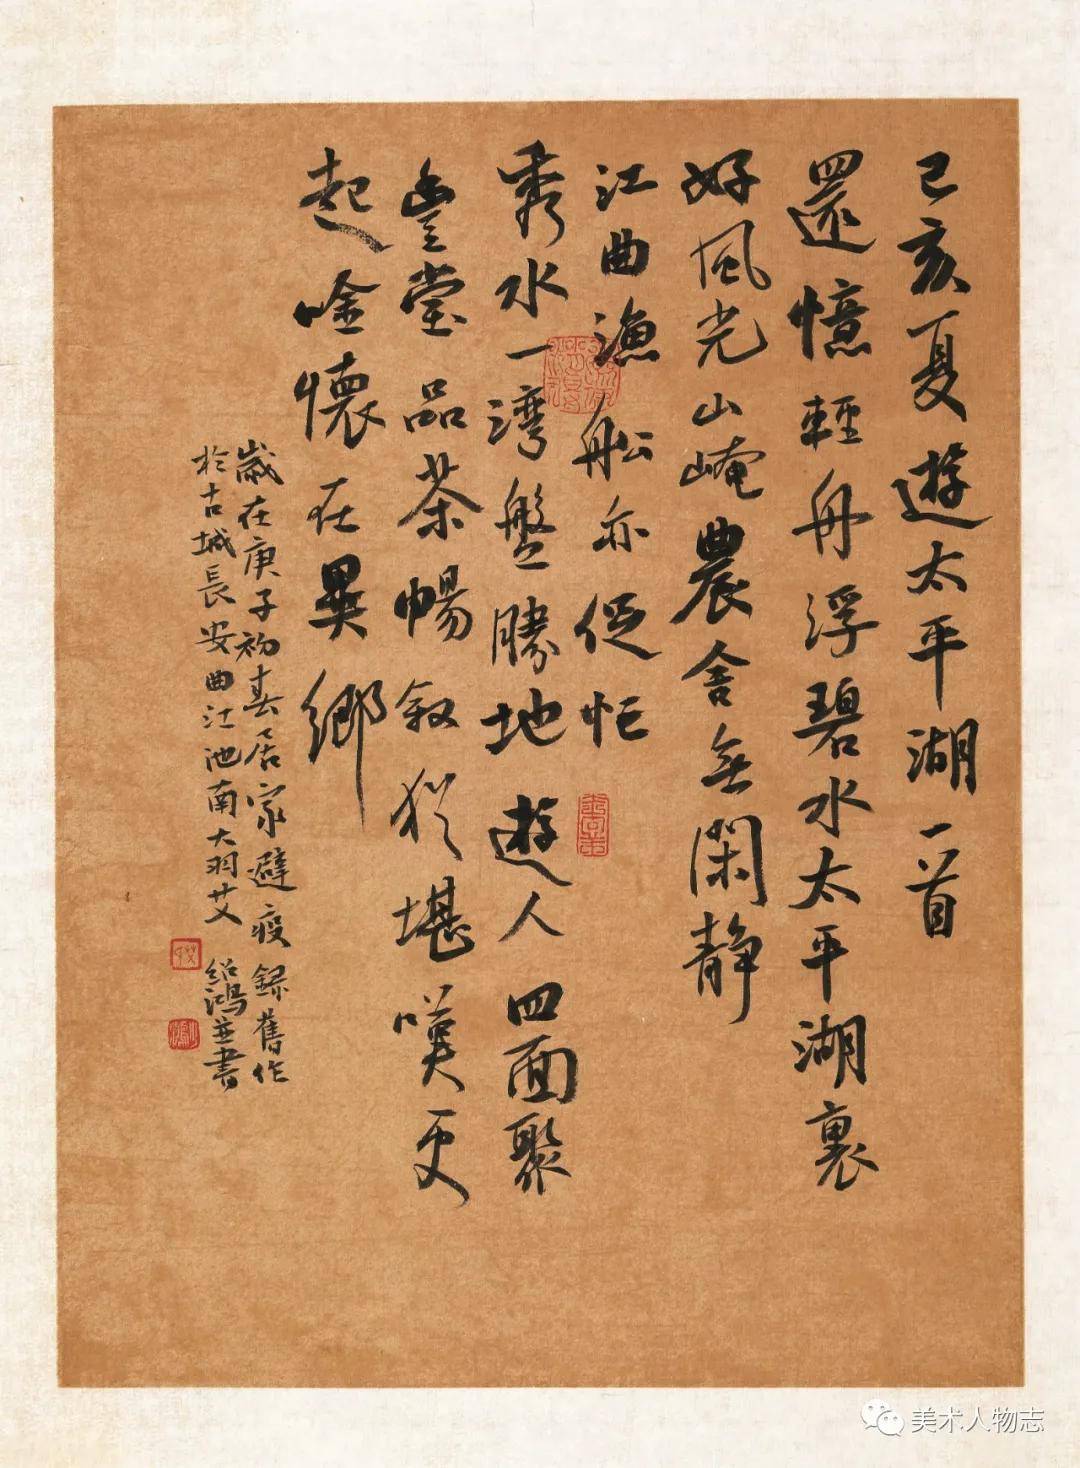 己亥夏遊太平湖一首
還憶輕舟浮碧水太平湖裏
好風光山崦農舍無閑静
江曲漁船亦促忙
秀水一湾盤勝地遊人四面聚
堂品茶暢叙猶堪嘆更
起唫懷在異鄉
歲在庚子初春居家避疫録舊作
於古城長安曲江池南大羽艾紹鴻並書
美术人物志